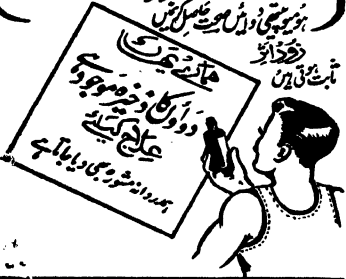 ہومیوپیتھی دوائیں صحت حاصل کریں
زود اثر
ثابت ہوتی ہیں
ہمارے یہاں
دواؤں کا ذخیرہ موجود ہے
علاج کیلئے
ہمدردانہ مشورہ بھی دیا جاتا ہے